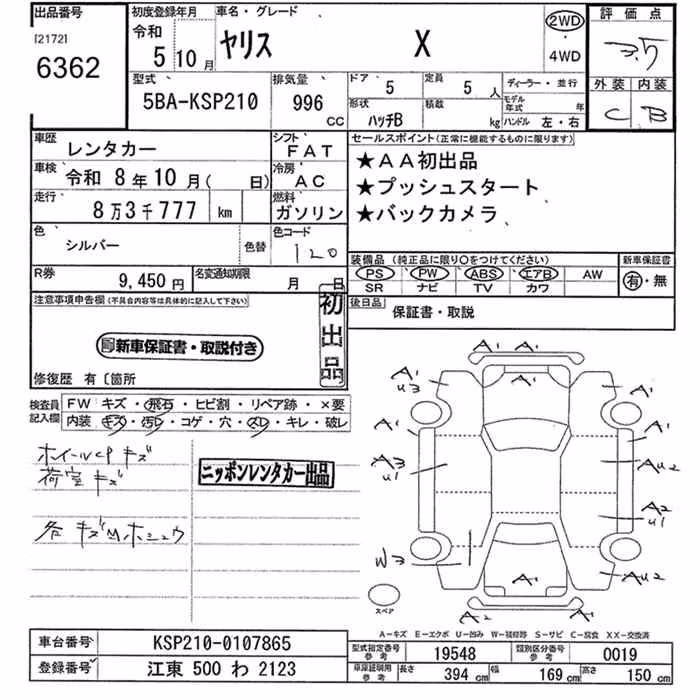 出品番号 初度登録年月 車名・グレード 評価点
[2172] 令和 ヤリス X 2WD 3.5
6362 5 10月 4WD
型式 排気量 ドア 定員 ディーラー・並行 外装 内装
5BA-KSP210 996 CC 5 5人 モデル年式 年 C B
形状 ハッチB 積載 kg ハンドル 左・右
車歴 レンタカー シフト FAT セールスポイント(正常に機能するものに限ります)
車検 令和 8年10月( 日) 冷房 AC ★AA初出品
走行 8万3千777 km 燃料 ガソリン ★プッシュスタート
★バックカメラ
色 シルバー 色替 色コード 120
装備品 (純正品に限り○をつけてください) 新車保証書
PS PW ABS エアB AW 有・無
SR ナビ TV カワ
R券 9,450円 名変通知期限 月 日
注意事項申告欄(不具合内容等は具体的に記入して下さい) 初出品 後日品 保証書・取説
新車保証書・取説付き
修復歴 有〔箇所
検査員記入欄 FW キズ・飛石・ヒビ割・リペア跡・×要
内装 キズ・汚レ・コゲ・穴・スレ・キレ・破レ
ホイールCP キズ
荷室 キズ
ニッポンレンタカー出品
各 キズM ホシュウ
A1 A1
A1 U3 A1 A1
A1 A1
A3 U1 AU2
A2 U1
W3
A1 AU2
A1 A1
スペア
A-キズ E-エクボ U-凹み W-補修跡 S-サビ C-腐食 XX-交換済
車台番号 KSP210-0107865 型式指定番号 参考 19548 類別区分番号 参考 0019
登録番号 江東 500 わ 2123 車庫証明用 参考 長さ 394 cm 幅 169 cm 高さ 150 cm